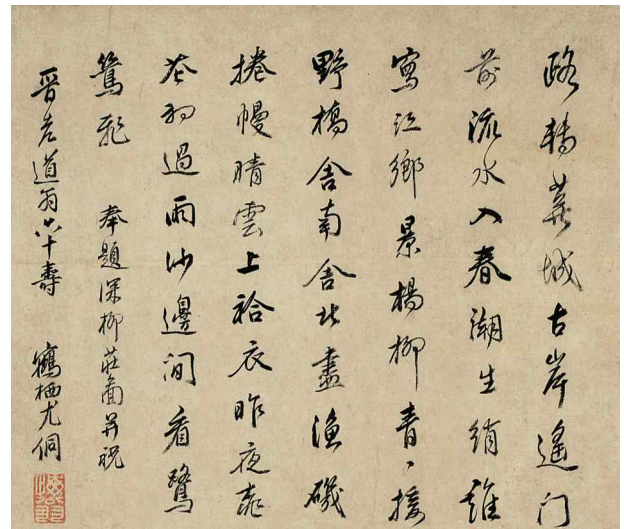 路轉蕪城古岸遙門
前流水入春潮生綃誰
寫江鄉景楊柳青〻接
野橋舍南舍北盡漁磯
捲幔晴雲上袷衣昨夜桃
花初過雨沙邊閒看鷺
鷥飛 奉題深柳莊圖并祝
晉老道翁六十壽 鶴栖尤侗